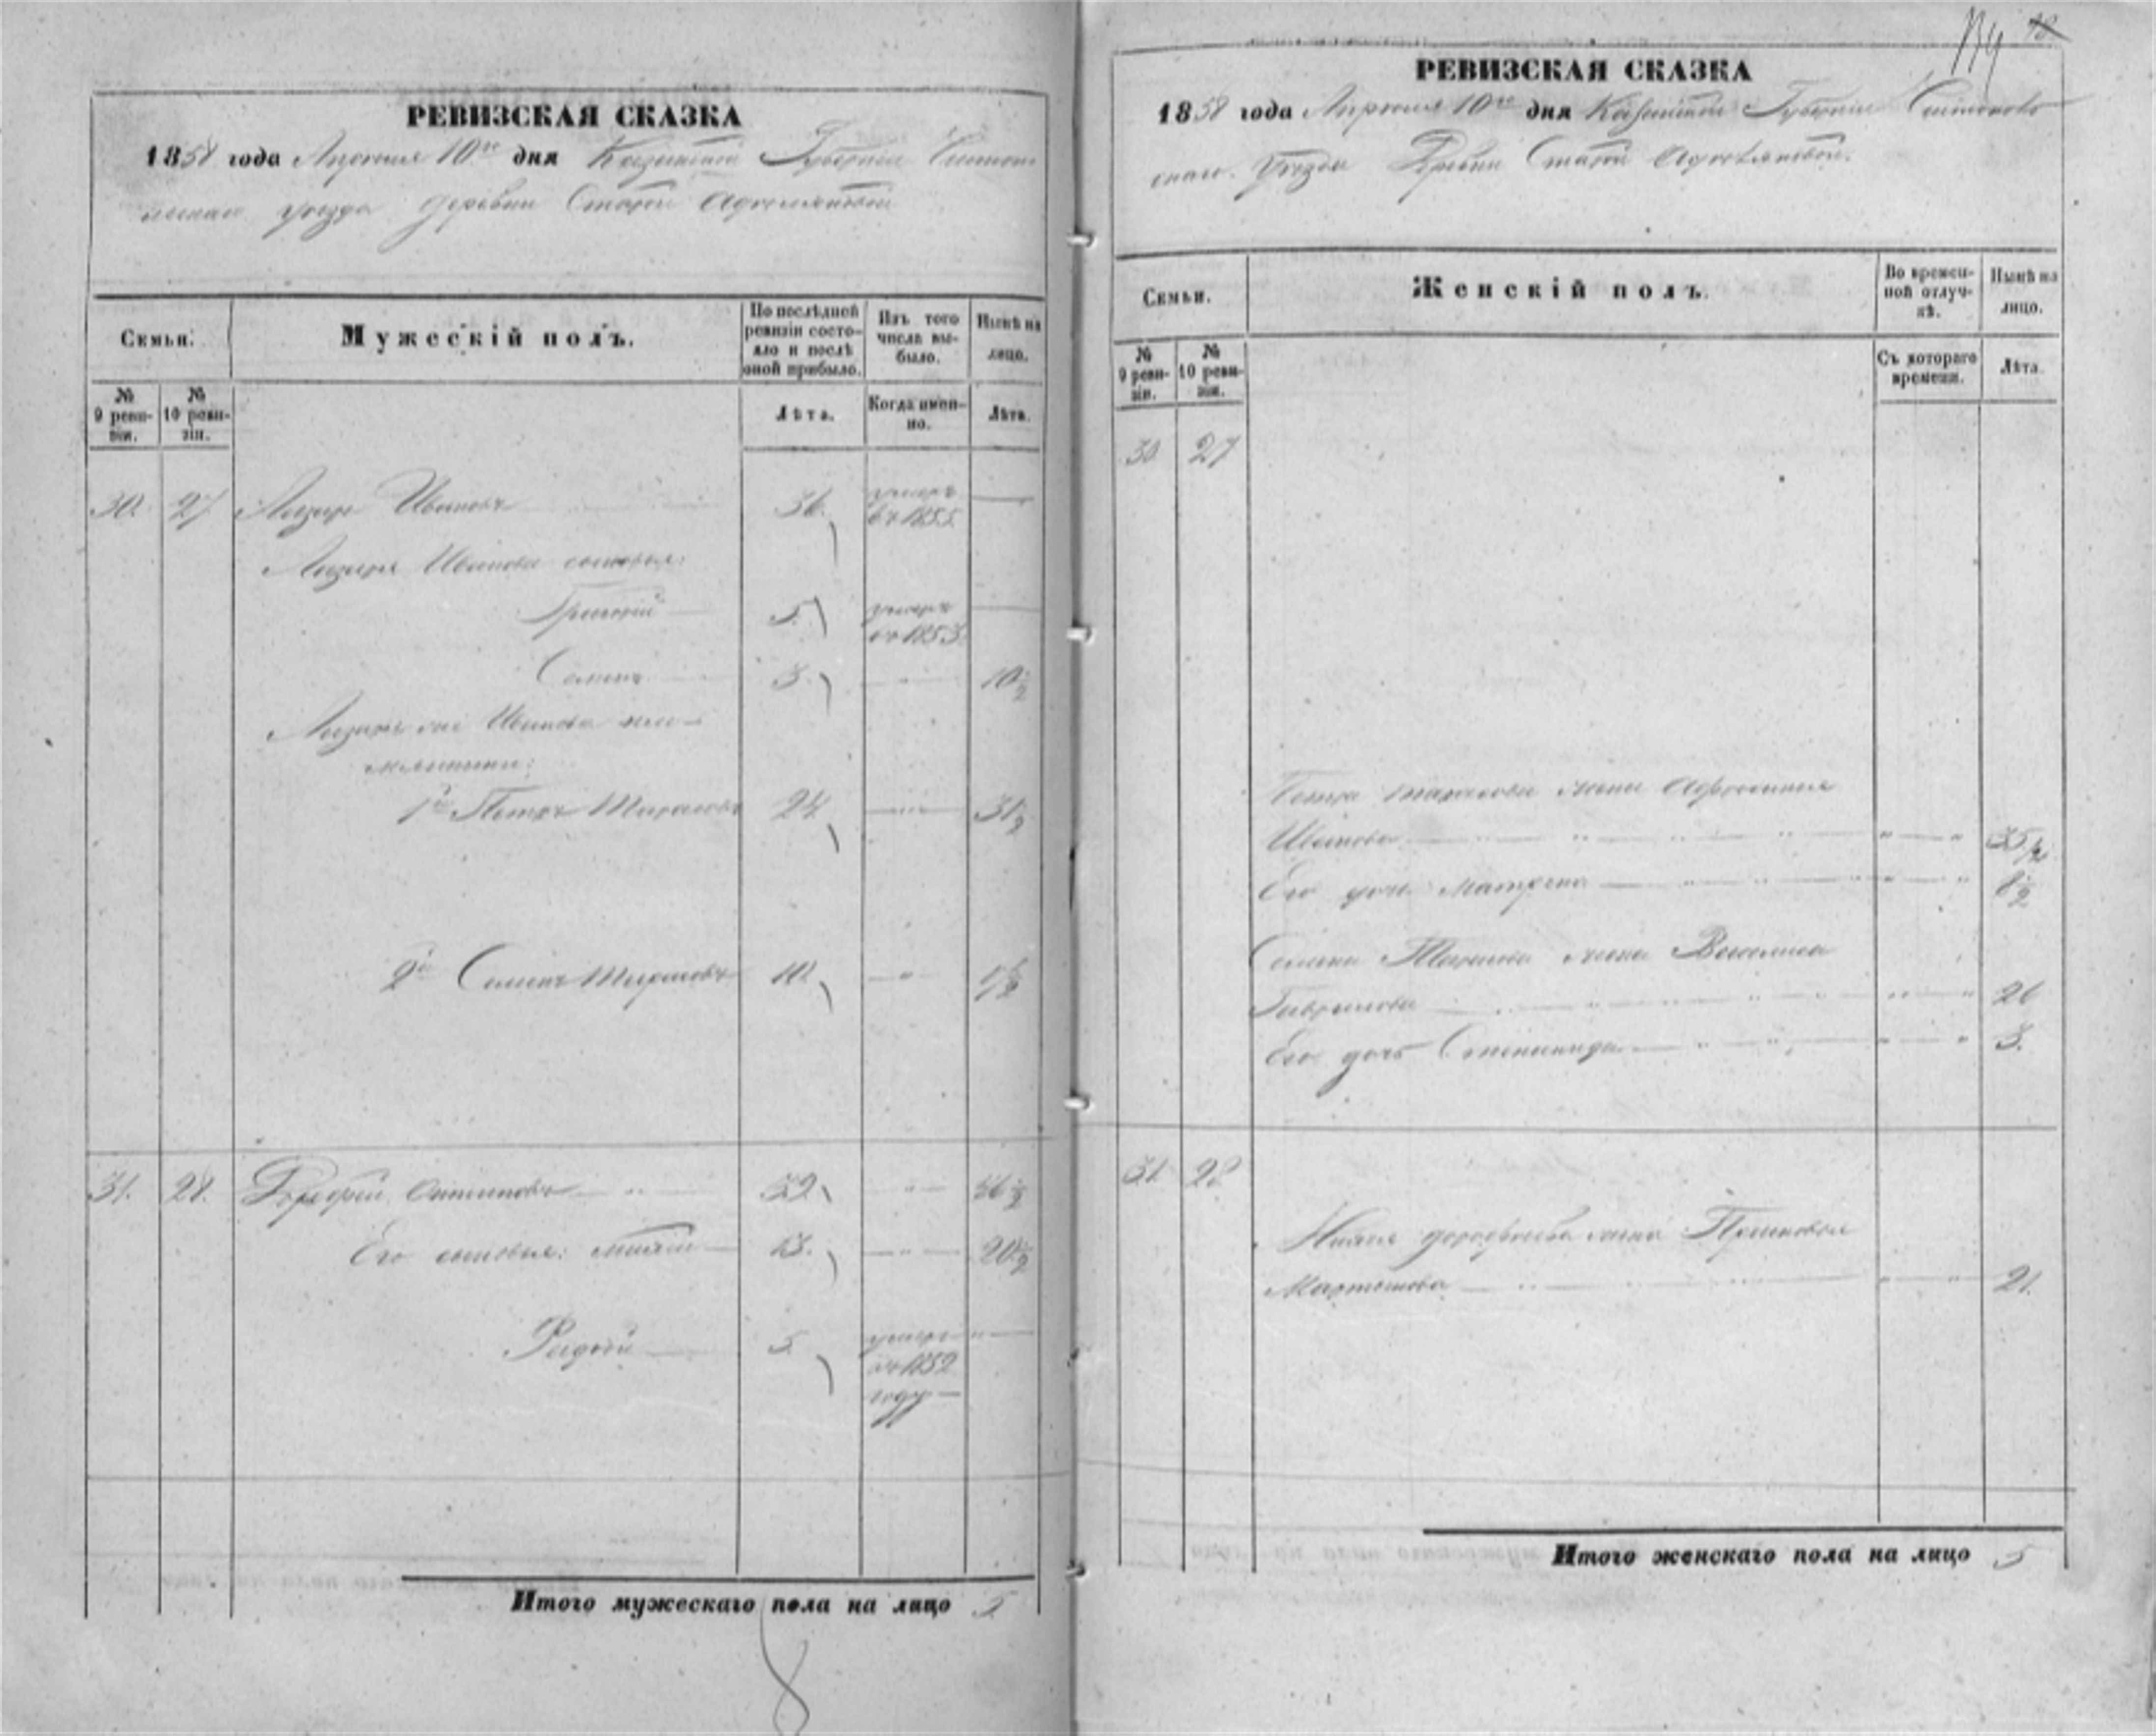 РЕВИЗСКАЯ СКАЗКА
1858 года Апреля 10го дня Казанской Губернии
уезда деревни Старой
Семьи.
Мужескій полъ.
По послѣдней ревизіи состояло и послѣ оной прибыло.
Изъ того числа выбыло.
Нынѣ на лицо.
№ 9 ревизіи.
№ 10 ревизіи.
Лѣта.
Когда именно.
Лѣта.
30. 27. Лазарь Ивановъ 36. умеръ въ 1855.
Лазаря Иванова сыновья:
Григорій 5. умеръ въ 1853.
Семенъ 3. 10 ½
Лазаря Иванова пле-
мянники:
1й Петръ Тарасовъ 24 31 ½
2й Семенъ Тарасовъ
31. 28. Дорофей 39.
Его сыновья: 13. 20 ½
5. умеръ въ 1852 году
Итого мужескаго пола на лицо 5.
114
РЕВИЗСКАЯ СКАЗКА
1858 года Апреля 10го дня Казанской Губернии
скаго Уезда Деревни Старой
Семьи.
Женскій полъ.
Во временной отлучкѣ.
Нынѣ на лицо.
№ 9 ревизіи.
№ 10 ревизіи.
Съ котораго времени.
Лѣта.
30 27
Петра Тарасова жена
Иванова 35 ½
Его дочь Матрена 8 ½
Семена Тарасова жена Василиса
Гаврилова 26
Его дочь Степанида 3.
31 28
Дорофеева жена Прасковья
Мартынова 21.
Итого женскаго пола на лицо 5